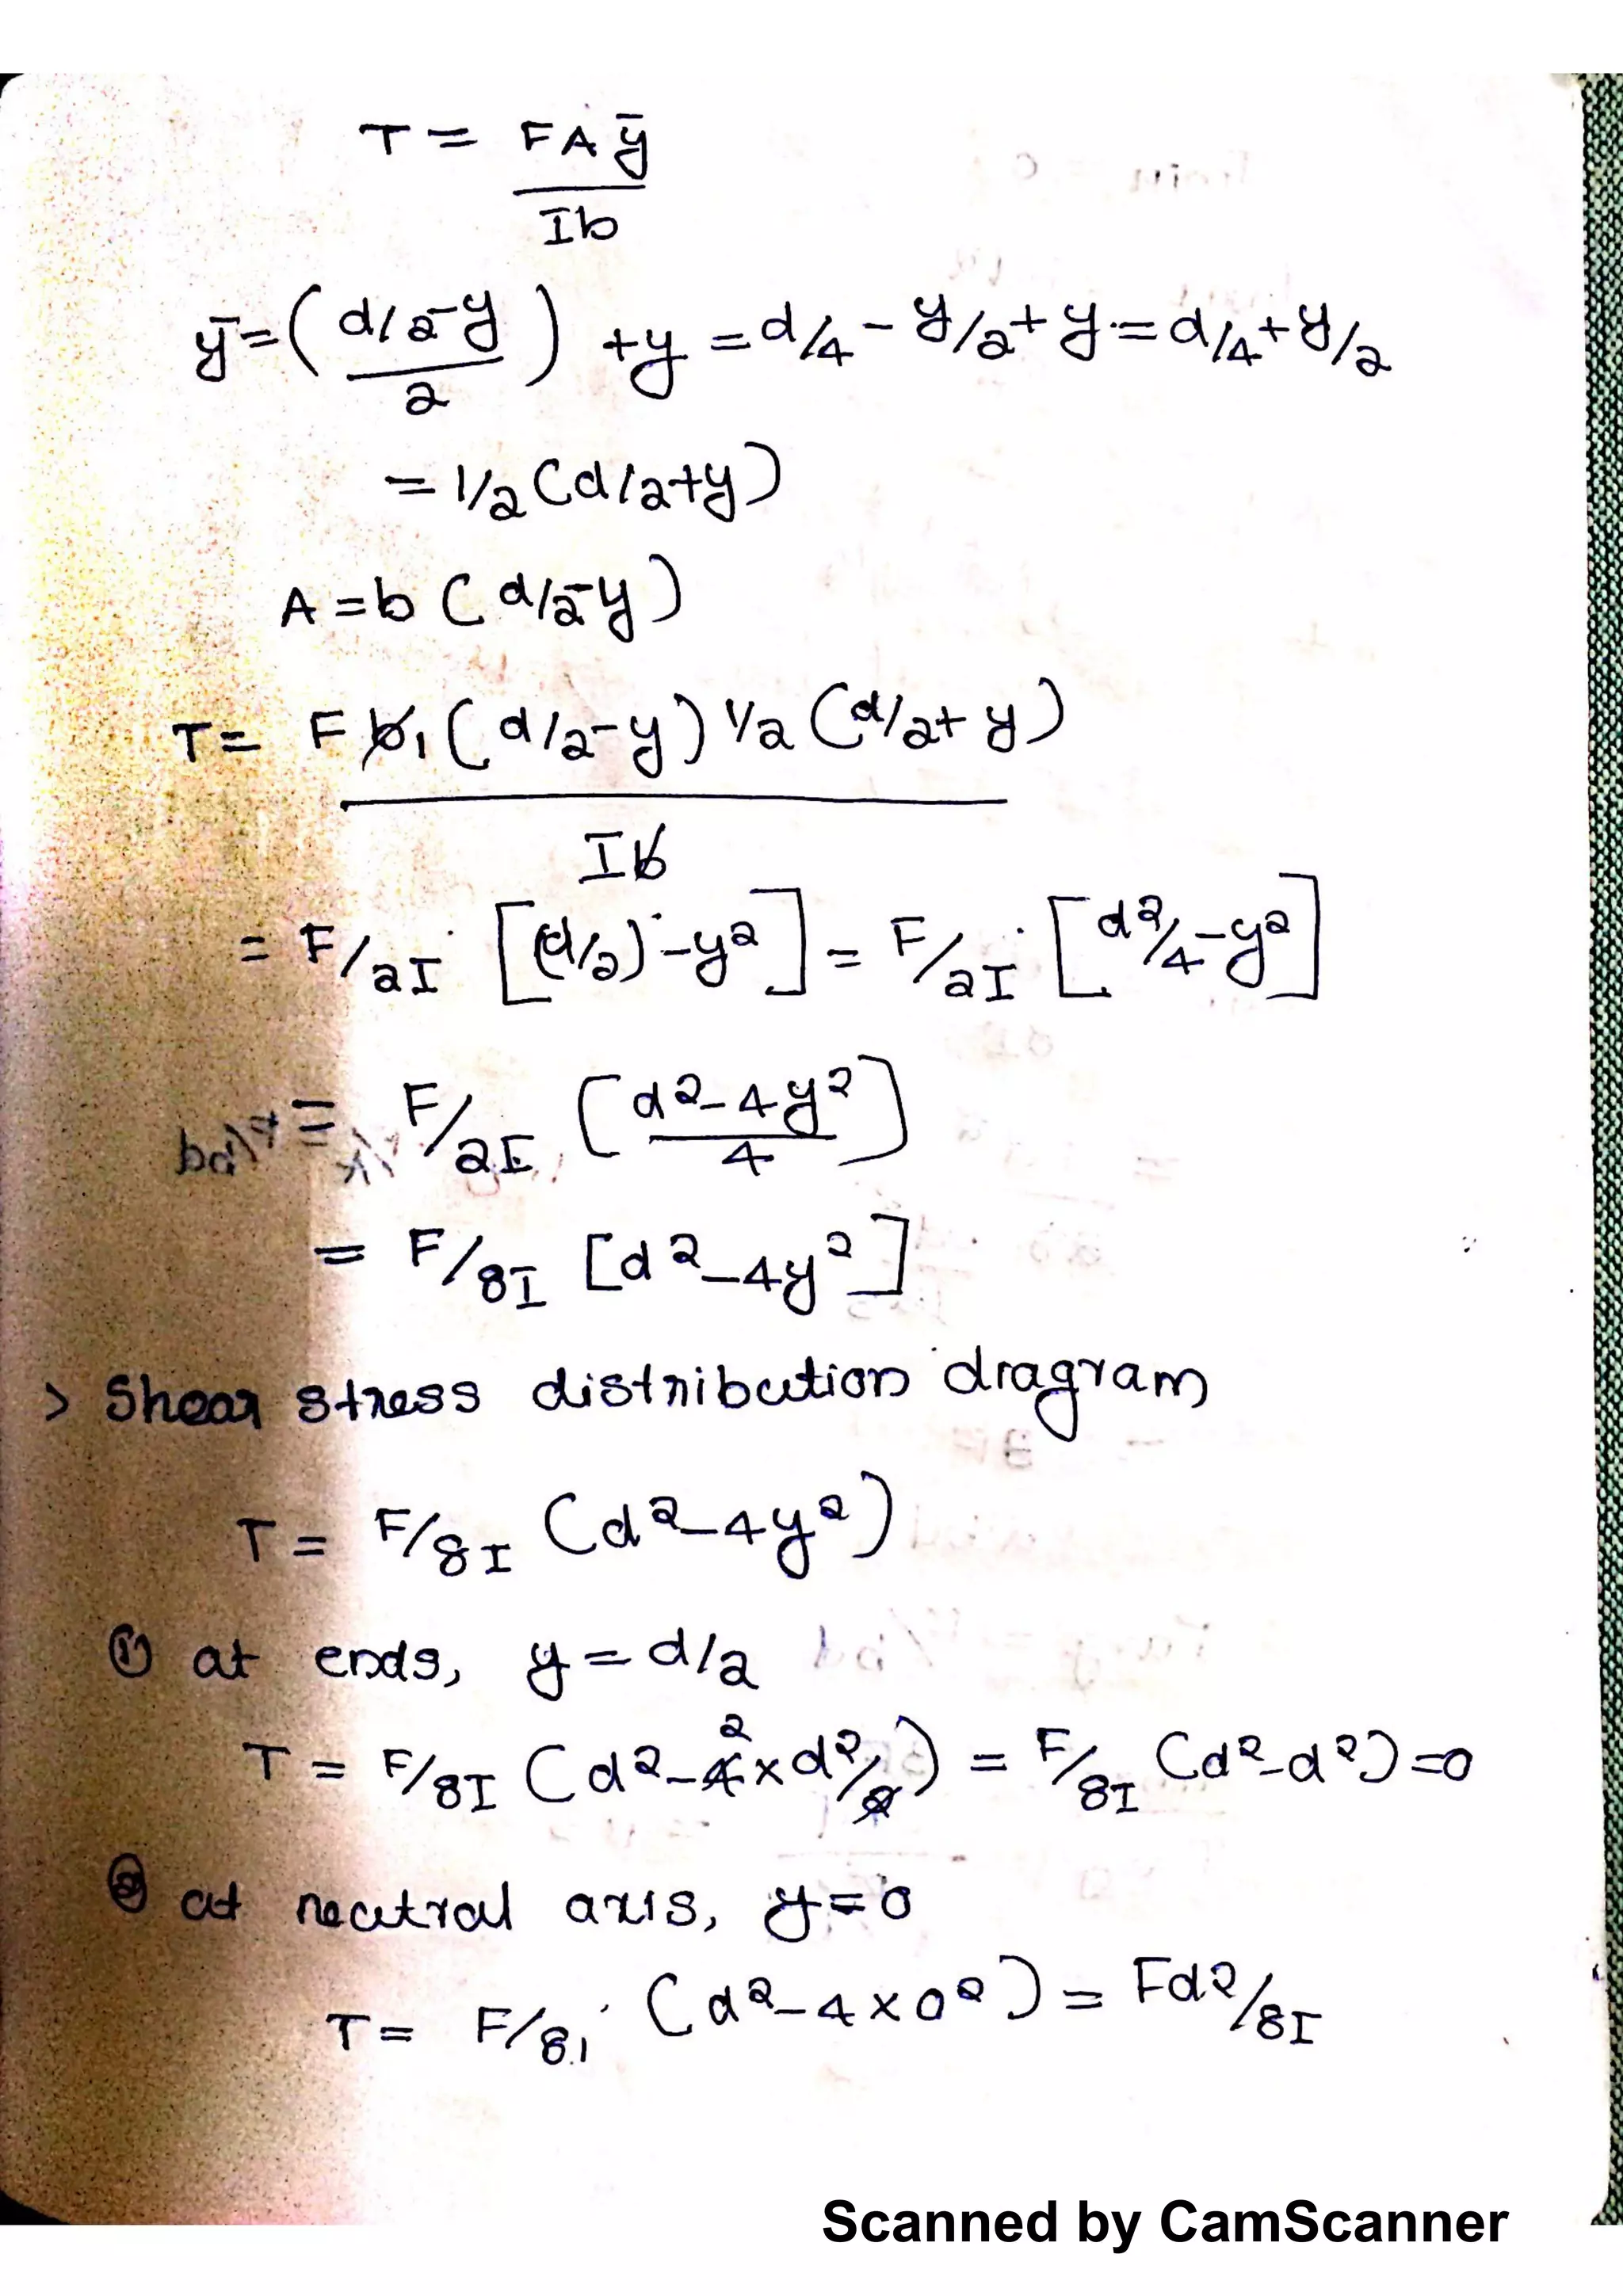 T = FAȳ
Ib
ȳ = ( d/2-y / 2 ) + y = d/4 - y/2 + y = d/4 + y/2
= 1/2 (d/2+y)
A = b (d/2-y)
T = F b (d/2-y) 1/2 (d/2+y)
Ib
= F/2I [(d/2)² - y²] = F/2I [d²/4 - y²]
= F/2I [d²-4y² / 4]
= F/8I [d²-4y²]
> Shear stress distribution diagram
T = F/8I (d²-4y²)
① at ends, y = d/2
T = F/8I (d²-4×d²/4) = F/8I (d²-d²)=0
② at neutral axis, y=0
T = F/8I (d²-4×0²) = Fd²/8I
Scanned by CamScanner